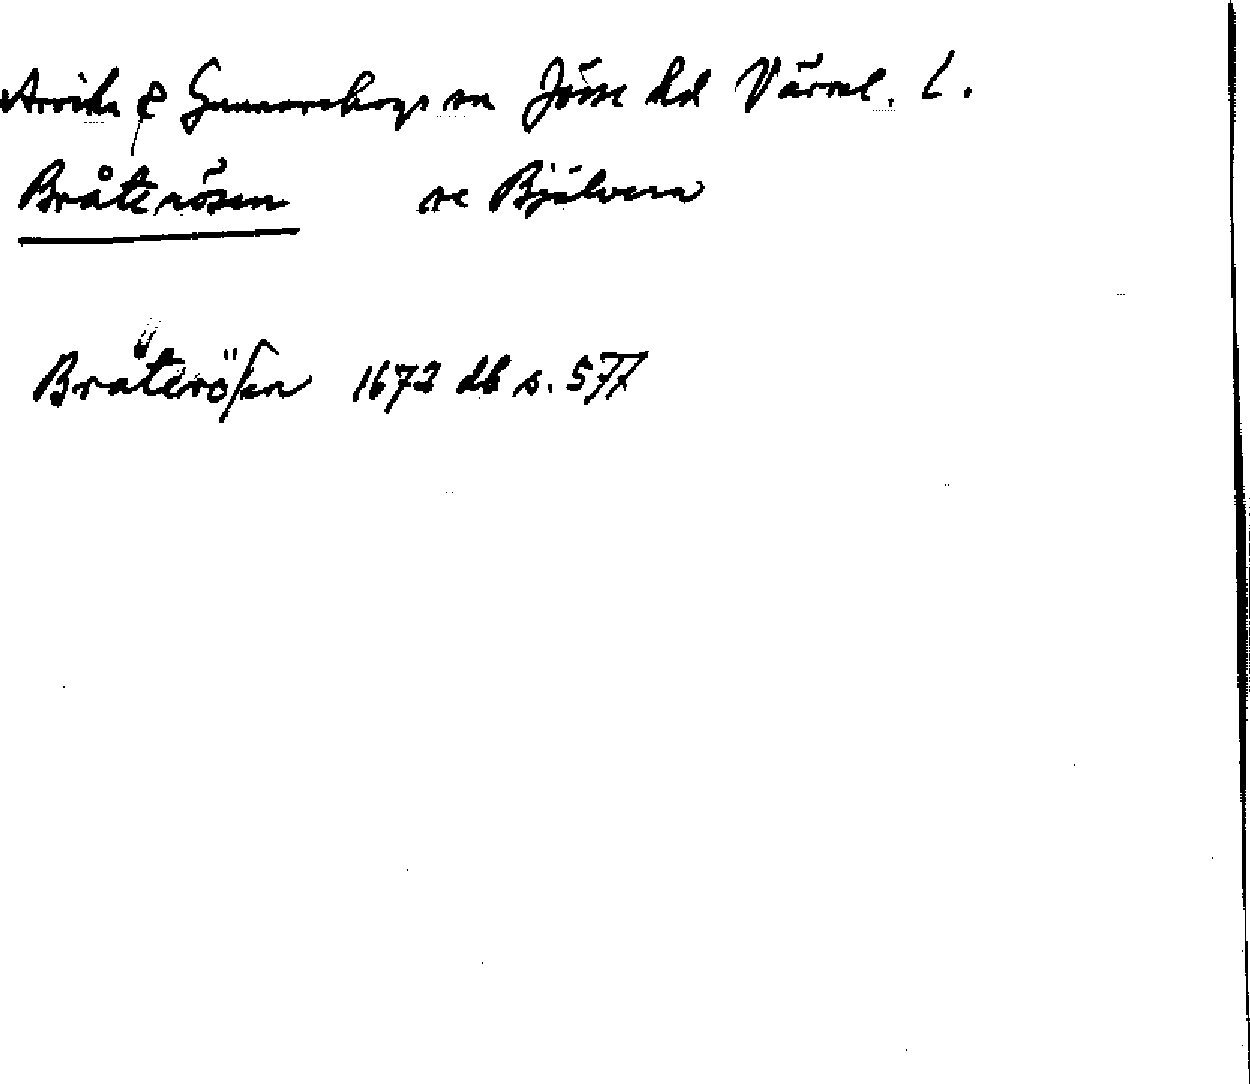 Arvika & Gunnarskogs sn Jösse hd Värml. L.
Bråterösen se Bjälvern
Bråterösen 1672 db s. 577